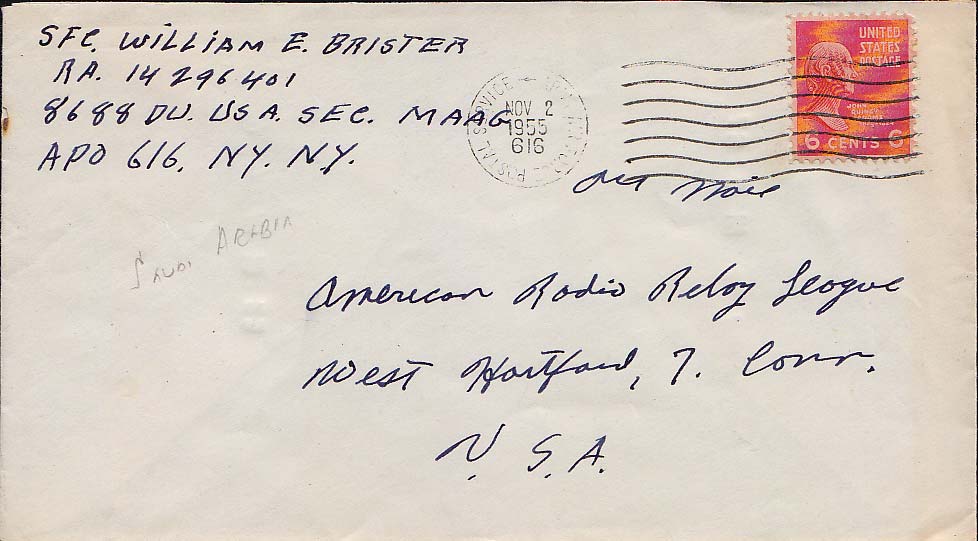 SFC. WILLIAM E. BRISTER
RA. 14296401
8688 DU. USA. SEC. MAAG
APO 616, NY. NY.
NOV 2
1955
616
POSTAL SERVICE
UNITED
STATES
POSTAGE
JOHN
QUINCY
6 CENTS 6
Air Mail
SAUDI ARABIA
American Radio Relay League
West Hartford, 7. Conn.
U. S. A.